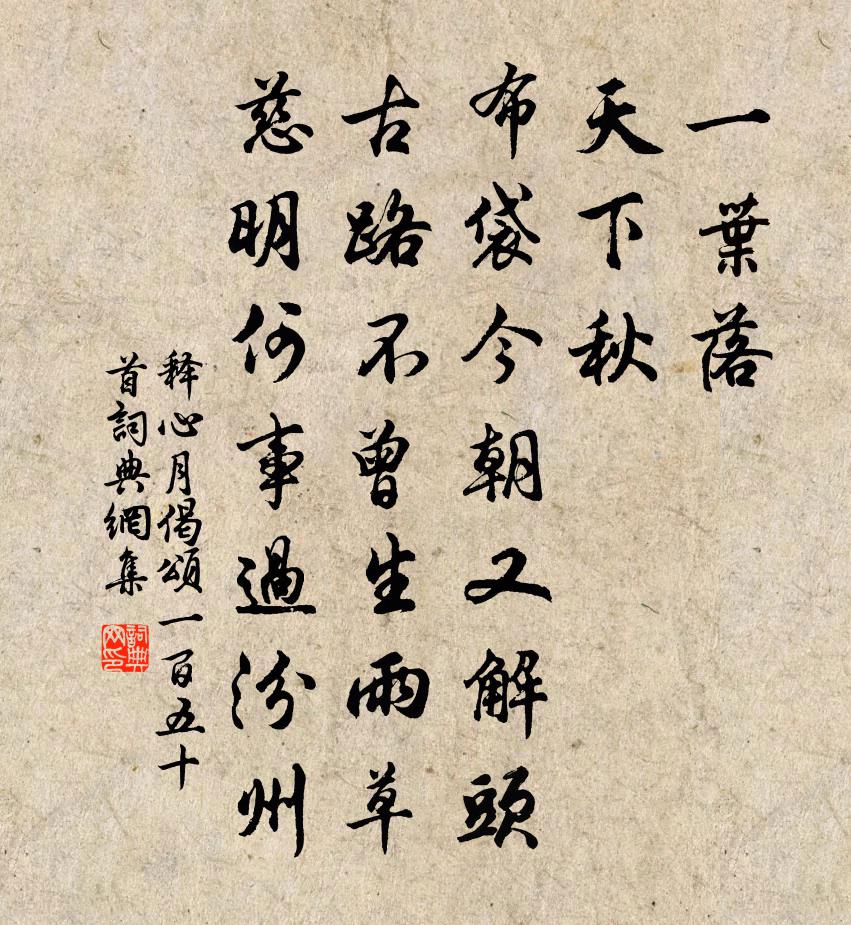 一葉落
天下秋
布袋今朝又解頭
古路不曾生雨草
慈明何事過汾州
释心月偈頌一百五十
首詞典網集
詞典
网印